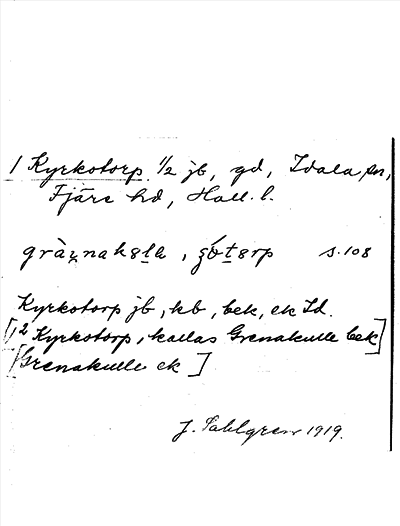 1 Kyrkotorp ½ jb, gd, Idala sn,
Fjäre hd, Hall. l.
s. 108
Kyrkotorp jb, kb, bek, ek Id.
[,2 Kyrkotorp, kallas Grenakulle bek]
[Grenakulle ek]
J. Sahlgren 1919.